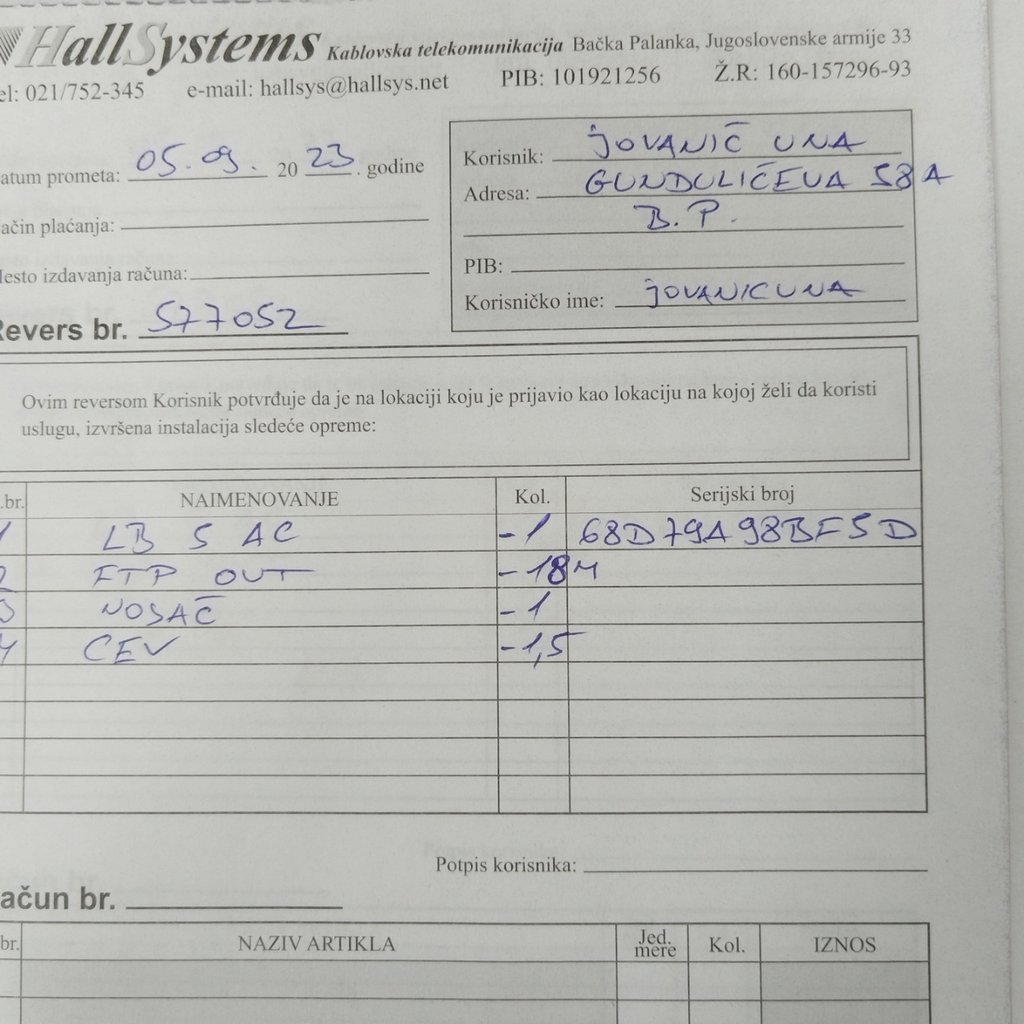 HallSystems Kablovska telekomunikacija Bačka Palanka, Jugoslovenske armije 33
el: 021/752-345 e-mail: hallsys@hallsys.net PIB: 101921256 Ž.R: 160-157296-93
atum prometa: 05.09. 20 23. godine
ačin plaćanja:
esto izdavanja računa:
Revers br. 577052
Korisnik: JOVANIĆ UNA
Adresa: GUNDULIĆEVA 58A
B.P.
PIB:
Korisničko ime: JOVANICUNA
Ovim reversom Korisnik potvrđuje da je na lokaciji koju je prijavio kao lokaciju na kojoj želi da koristi
uslugu, izvršena instalacija sledeće opreme:
.br. NAIMENOVANJE Kol. Serijski broj
1 LB 5 AC -1 68D79A98BF5D
2 FTP OUT -18M
3 NOSAČ -1
4 CEV -1,5
Potpis korisnika:
ačun br.
br. NAZIV ARTIKLA Jed. mere Kol. IZNOS